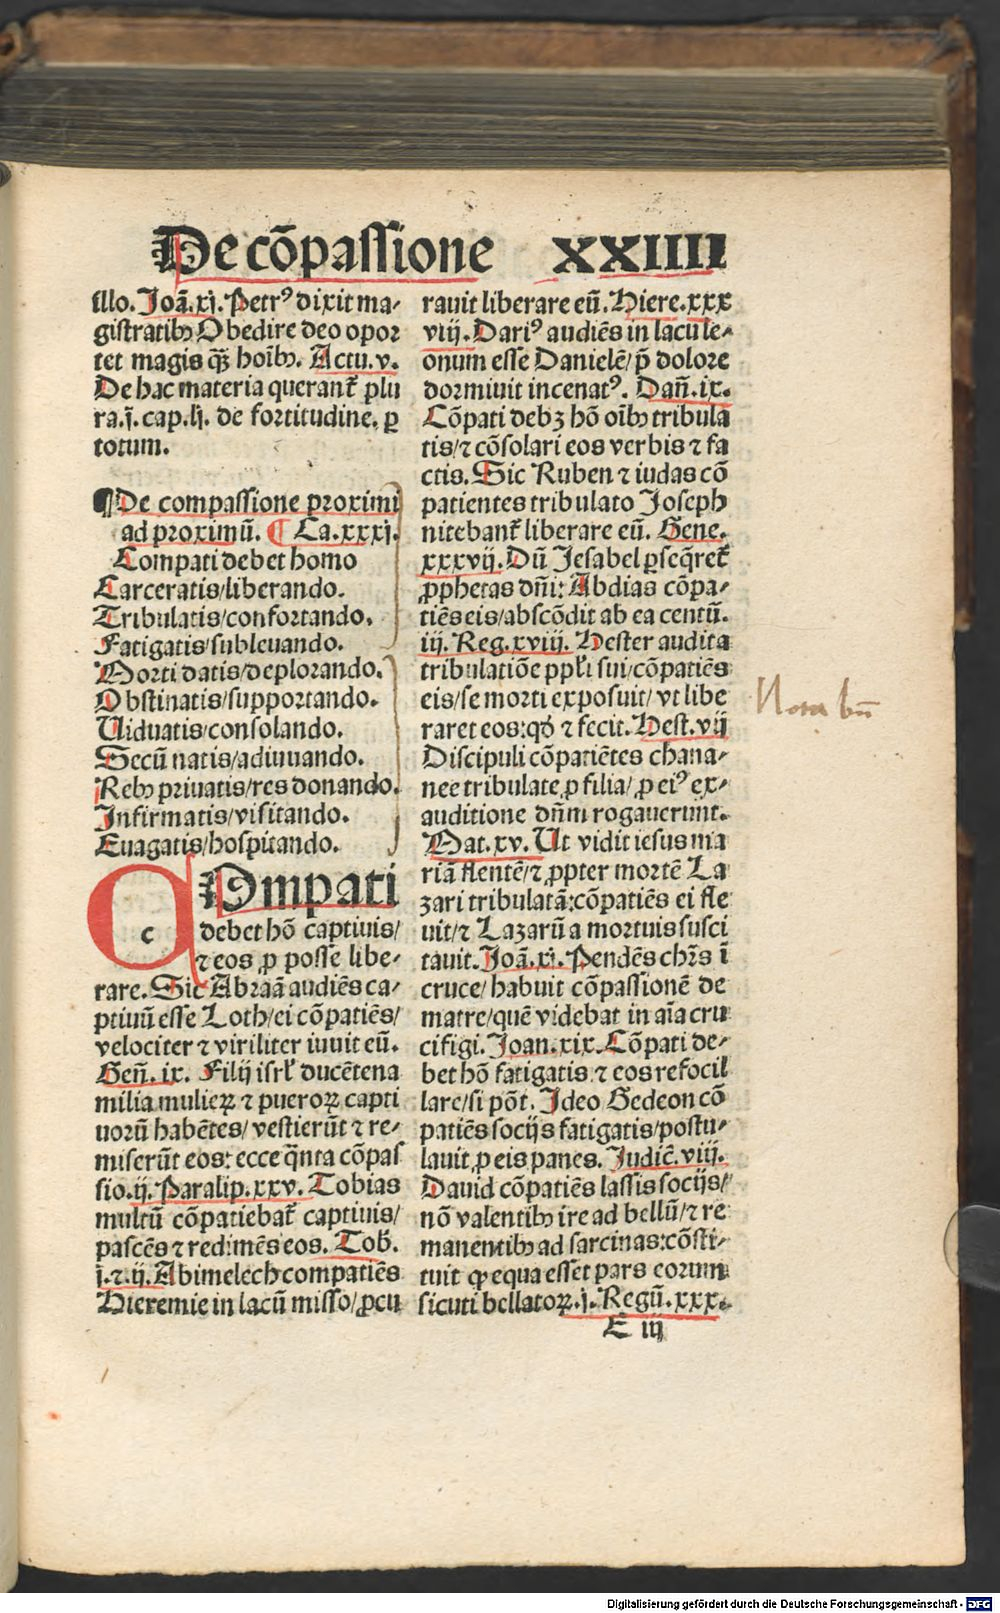 De cōpassione XXIIII
illo. Joā.xj. Petrꝰ dixit ma⸗
gistratibꝫ Obedire deo opor
tet magis qꝫ̄ hoībꝫ. Actu.v.
De hac materia querant᷑ plu
ra.j. cap.lj. de fortitudine. ꝑ
totum.
¶De compassione proximi
ad proximū. ¶ Ca.xxxj.
Compati debet homo
Carceratis/liberando.
Tribulatis/confortando.
Fatigatis/subleuando.
Morti datis/deplorando.
Obstinatis/supportando.
Uiduatis/consolando.
Secū natis/adiuuando.
Rebꝫ priuatis/res donando.
Infirmatis/visitando.
Euagatis/hospitando.
COmpati
c
debet hō captiuis/
⁊ eos ꝓ posse libe⸗
rare. Sic Abraā audiēs ca⸗
ptiuū esse Loth/ei cōpatiēs/
velociter ⁊ viriliter iuuit eū.
Geñ. ix. Filij isrl̓ ducētena
milia mulieꝝ ⁊ pueroꝝ capti
uorū habētes/ vestierūt ⁊ re⸗
miserūt eos: ecce q̄nta cōpas
sio.ij. Paralip.xxv. Tobias
multū cōpatiebat᷑ captiuis/
pascēs ⁊ redimēs eos. Tob.
j.⁊.ij. Abimelech compatiēs
Hieremie in lacū misso/ꝓcu
rauit liberare eū. Hiere.xxx
viij. Dariꝰ audiēs in lacu le⸗
onum esse Danielē/p̄ dolore
dormiuit incenatꝰ. Dañ.ix.
Cōpati debꝫ hō oībꝫ tribula
tis/⁊ cōsolari eos verbis ⁊ fa
ctis. Sic Ruben ⁊ iudas cō
patientes tribulato Joseph
nitebant᷑ liberare eū. Gene.
xxxvij. Dū Jesabel ꝑseq̄ret᷑
ꝓphetas dn̄i: Abdias cōpa⸗
tiēs eis/abscōdit ab ea centū.
iij. Reg.xviij. Hester audita
tribulatiōe ppl̓i sui/cōpatiēs
eis/se morti exposuit/ vt libe
raret eos:qd̓ ⁊ fecit. Hest.vij
Discipuli cōpatiētes chana⸗
nee tribulate ꝓ filia/ ꝓ eiꝰ ex⸗
auditione dn̄m rogauerunt.
Mat.xv. Ut vidit iesus ma
riā flentē/⁊ ꝓpter mortē La
zari tribulatā:cōpatiēs ei fle
uit/⁊ Lazarū a mortuis susci
tauit. Joā.xi. Pendēs chr̄s ī
cruce/ habuit cōpassionē de
matre/quē videbat in aīa cru
cifigi. Joan.xix. Cōpati de⸗
bet hō fatigatis ⁊ eos refocil
lare/si pōt. Ideo Gedeon cō
patiēs socijs fatigatis/postu⸗
lauit ꝓ eis panes. Judic̄.viij.
Dauid cōpatiēs lassis socijs/
nō valentibꝫ ire ad bellū/⁊ re
manentibꝫ ad sarcinas:cōsti⸗
tuit ꝙ equa esset pars eorum
sicuti bellatoꝝ.j. Regū.xxx.
E iij
Nota bn̄
Digitalisierung gefördert durch die Deutsche Forschungsgemeinschaft - DFG